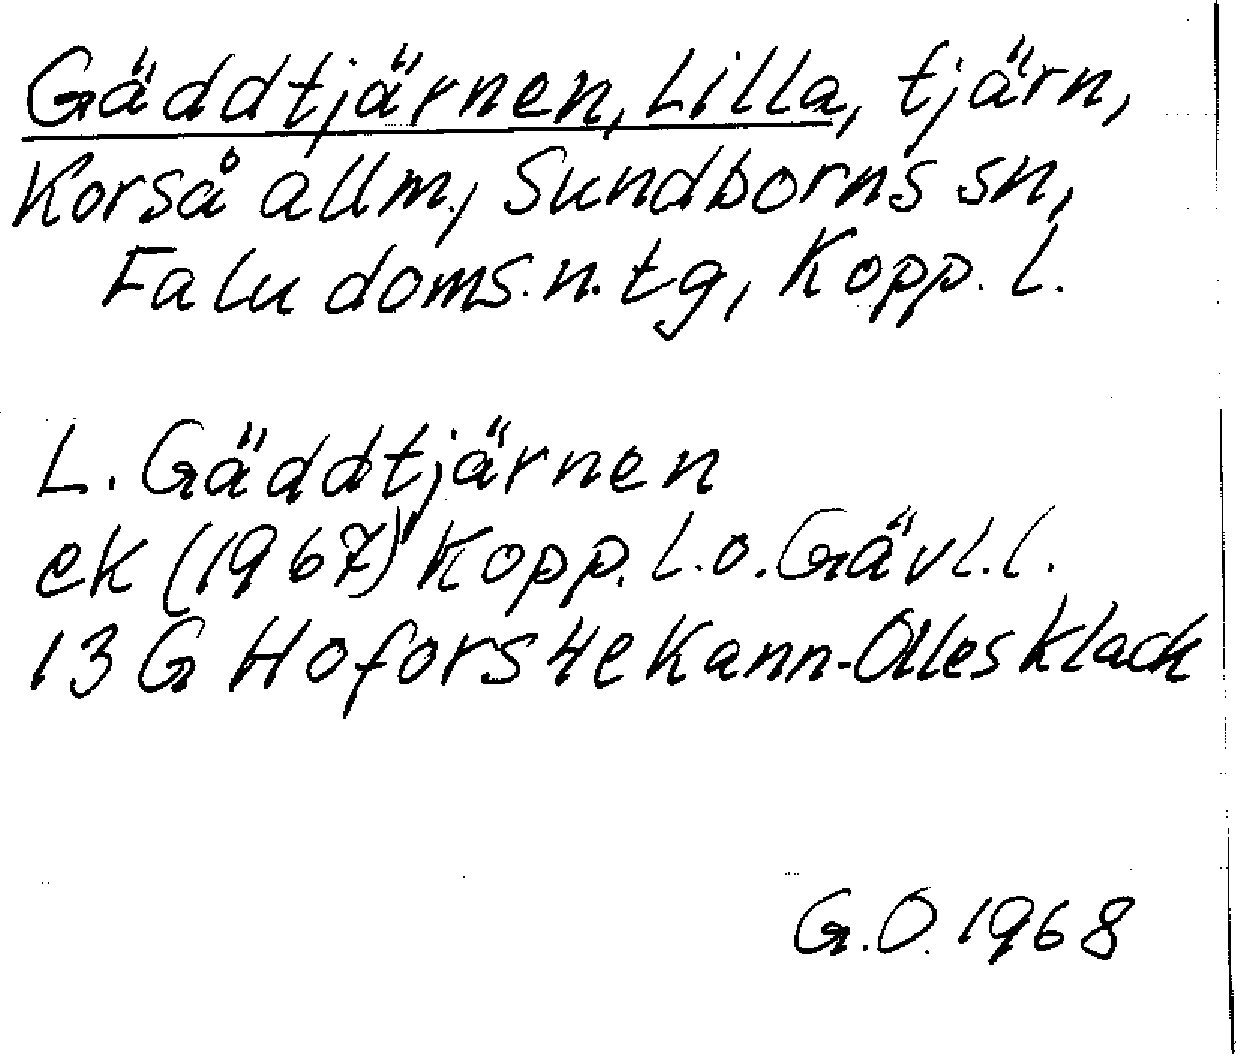 Gäddtjärnen, Lilla, tjärn,
Korså allm., Sundborns sn,
Falu doms.n.tg, Kopp. l.
L. Gäddtjärnen
ek (1967) Kopp. l. o. Gävl. l.
13 G Hofors 4e Kann-Olles klack
G.O. 1968